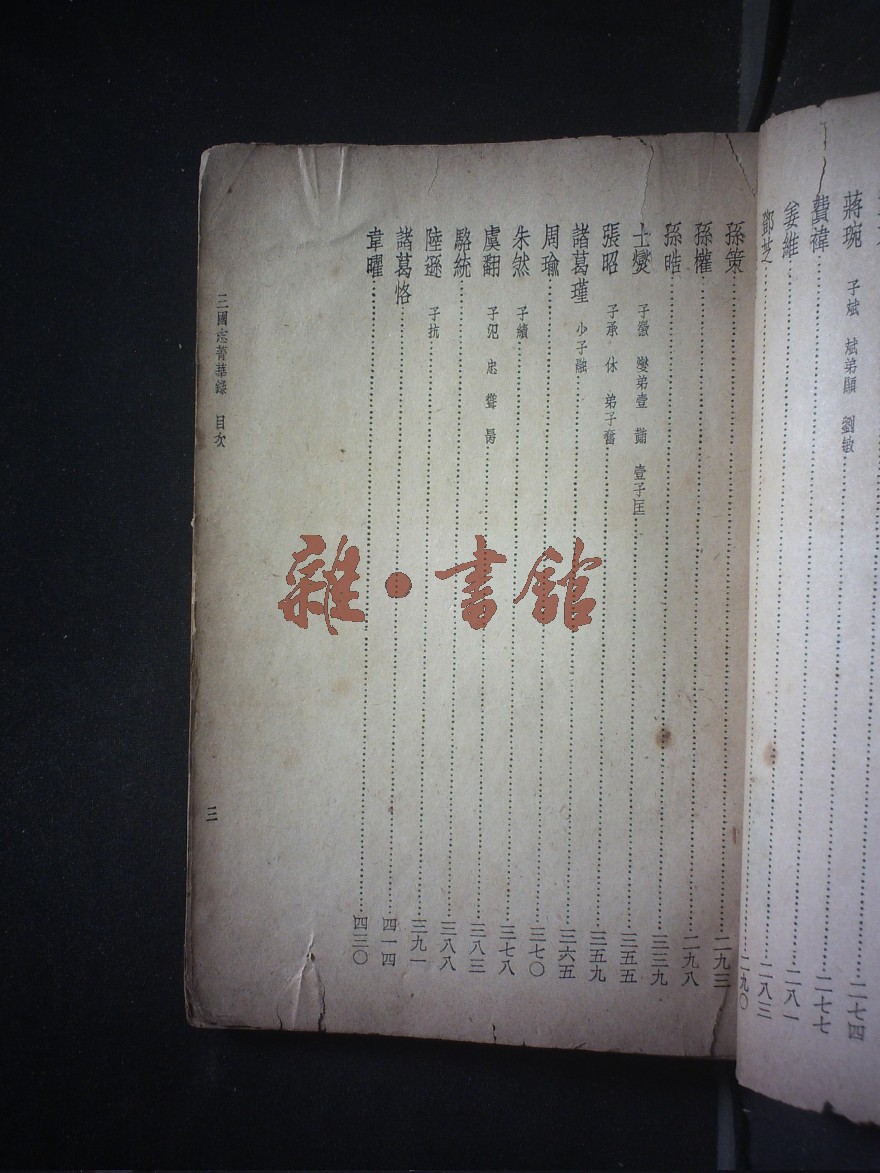 蔣琬 子斌 斌弟顯 劉敏 二七四
費禕 二七七
姜維 二八一
鄧芝 二八三
二九〇
孫策 二九三
孫權 二九八
孫晧 三三九
士燮 子徽 燮弟壹 壹子匡 三五五
張昭 子承 休 弟子奮 三五九
諸葛瑾 少子融 三六五
周瑜 三七〇
朱然 子績 三七八
虞翻 子汜 忠 聳 昺 三八三
駱統 三八八
陸遜 子抗 三九一
諸葛恪 四一四
韋曜 四三〇
三國志菁華錄 目次 三
雜•書館